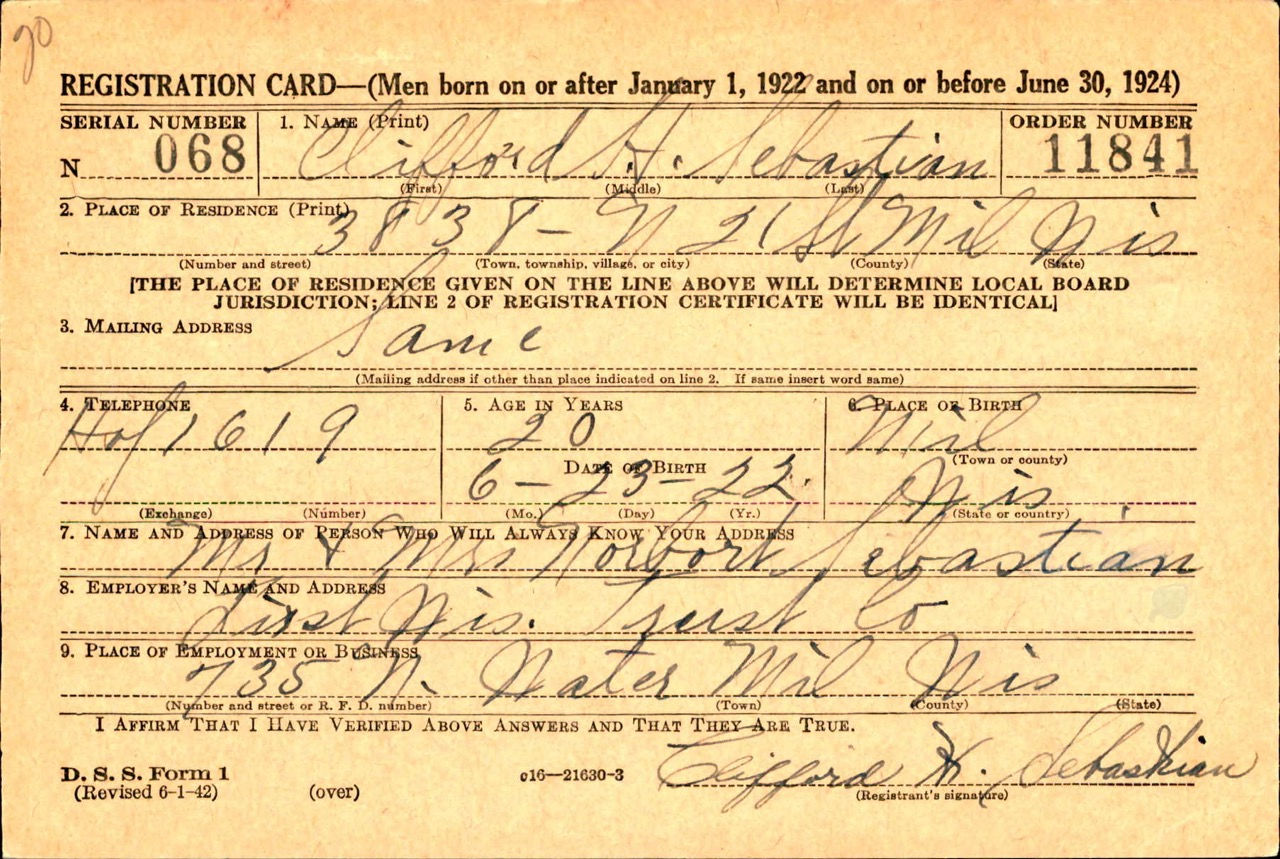 20
REGISTRATION CARD—(Men born on or after January 1, 1922 and on or before June 30, 1924)
SERIAL NUMBER 1. NAME (Print) ORDER NUMBER
N 068 Clifford H. Sebastian 11841
(First) (Middle) (Last)
2. PLACE OF RESIDENCE (Print)
3838 - N 21 St Mil Wis
(Number and street) (Town, township, village, or city) (County) (State)
[THE PLACE OF RESIDENCE GIVEN ON THE LINE ABOVE WILL DETERMINE LOCAL BOARD
JURISDICTION; LINE 2 OF REGISTRATION CERTIFICATE WILL BE IDENTICAL]
3. MAILING ADDRESS
Same
(Mailing address if other than place indicated on line 2. If same insert word same)
4. TELEPHONE 5. AGE IN YEARS 6. PLACE OF BIRTH
Hof 1619 20 Mil
(Town or county)
DATE OF BIRTH
6-23-22. Wis
(Exchange) (Number) (Mo.) (Day) (Yr.) (State or country)
7. NAME AND ADDRESS OF PERSON WHO WILL ALWAYS KNOW YOUR ADDRESS
Mr & Mrs Norbert Sebastian
8. EMPLOYER'S NAME AND ADDRESS
First Wis. Trust Co
9. PLACE OF EMPLOYMENT OR BUSINESS
735 N. Water Mil Wis
(Number and street or R. F. D. number) (Town) (County) (State)
I AFFIRM THAT I HAVE VERIFIED ABOVE ANSWERS AND THAT THEY ARE TRUE.
Clifford H. Sebastian
D. S. S. Form 1 c16—21630-3
(Revised 6-1-42) (over) (Registrant's signature)